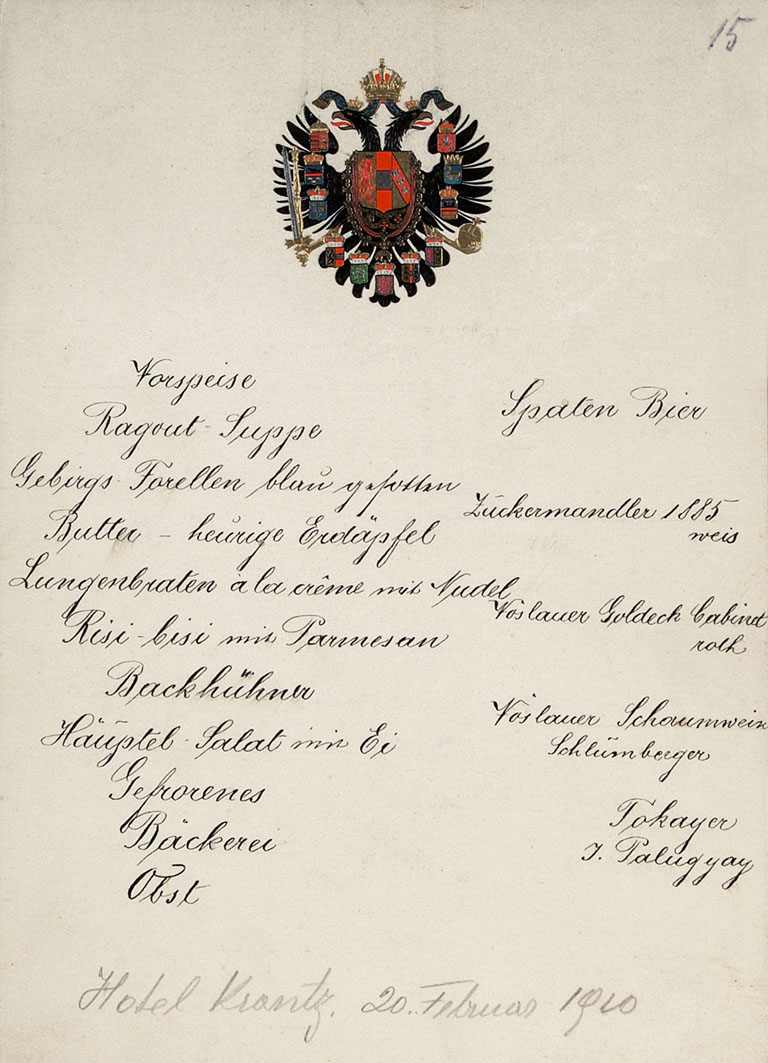 15
Vorspeise
Ragout-Suppe
Gebirgs-Forellen blau gesotten
Butter - heurige Erdäpfel
Lungenbraten à la crême mit Nudel
Risi-bisi mit Parmesan
Backhühner
Häuptel-Salat mit Ei
Gefrorenes
Bäckerei
Obst
Spaten Bier
Zuckermandler 1885
weis
Vöslauer Goldeck Cabinet
roth
Vöslauer Schaumwein
Schlumberger
Tokayer
J. Palugyay
Hotel Krantz, 20. Februar 1910